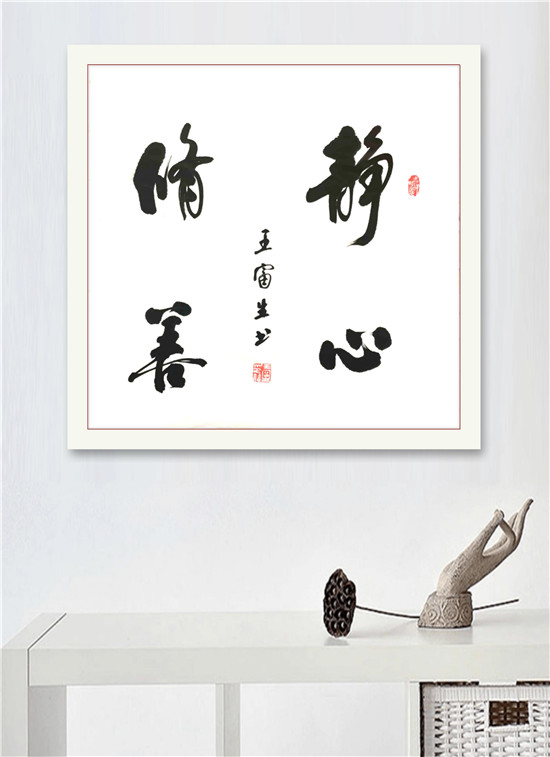 静心
脩善
王富生书